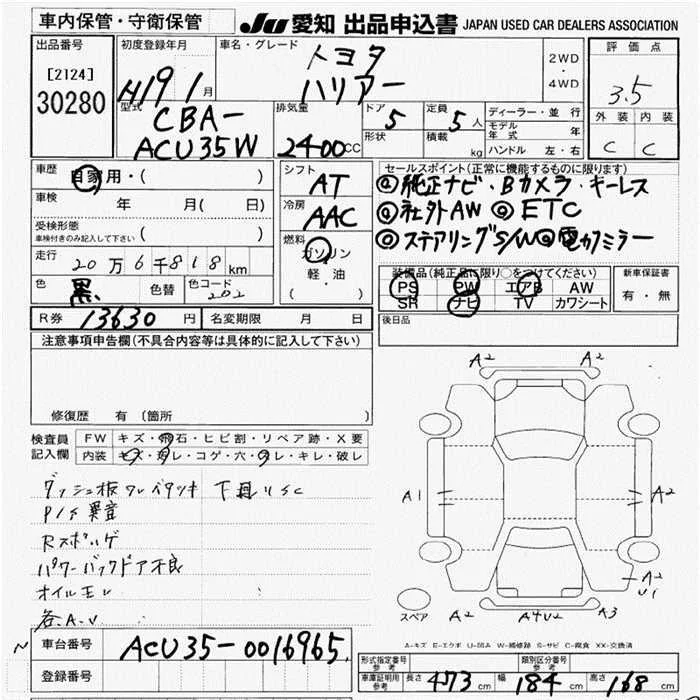 車内保管・守衛保管
JU 愛知 出品申込書 JAPAN USED CAR DEALERS ASSOCIATION
出品番号
[2124]
30280
初度登録年月
H19 1月
車名・グレード
トヨタ
ハリアー
2WD
・
4WD
評価点
3.5
外装 内装
C C
型式
CBA-
ACU35W
排気量
2400cc
ドア 5
形状
定員 5人
積載 kg
ディーラー・並行
モデル年式 年
ハンドル 左・右
車歴
自家用・( )
車検 年 月( 日)
受検形態
車検付きのみ記入して下さい ( )
走行
20万6千818km
色 黒 色替
色コード 202
シフト
AT
冷房
AAC
燃料
ガソリン
軽・油
( )
セールスポイント(正常に機能するものに限ります)
◎純正ナビ・Bカメラ・キーレス
◎社外AW ◎ETC
◎ステアリングS/W◎電カクミラー
装備品(純正品に限り○をつけてください)
PS PW エアB AW
SR ナビ TV カワシート
新車保証書
有・無
R券 13630円
名変期限 月 日
後日品
注意事項申告欄(不具合内容等は具体的に記入して下さい)
修復歴 有 〔箇所
検査員
記入欄
FW キズ・飛石・ヒビ割・リペア跡・X要
内装 キズ・スレ・コゲ・穴・ヌレ・キレ・破レ
ダッシュ板ワレベタツキ 下廻りSC
P/S異音
Rスポハゲ
パワーバックドア不良
オイルモレ
各A.U
A2 A2
A1 A2
A2
U1
スペア
A2 A4U2 A3
A-キズ E-エクボ U-凹み W-補修跡 S-サビ C-腐食 XX-交換済
車台番号
ACU35-0016965
登録番号
形式指定番号
参考
類別区分番号
参考
車庫証明用
参考
長さ 473cm 幅 184cm 高さ 168cm